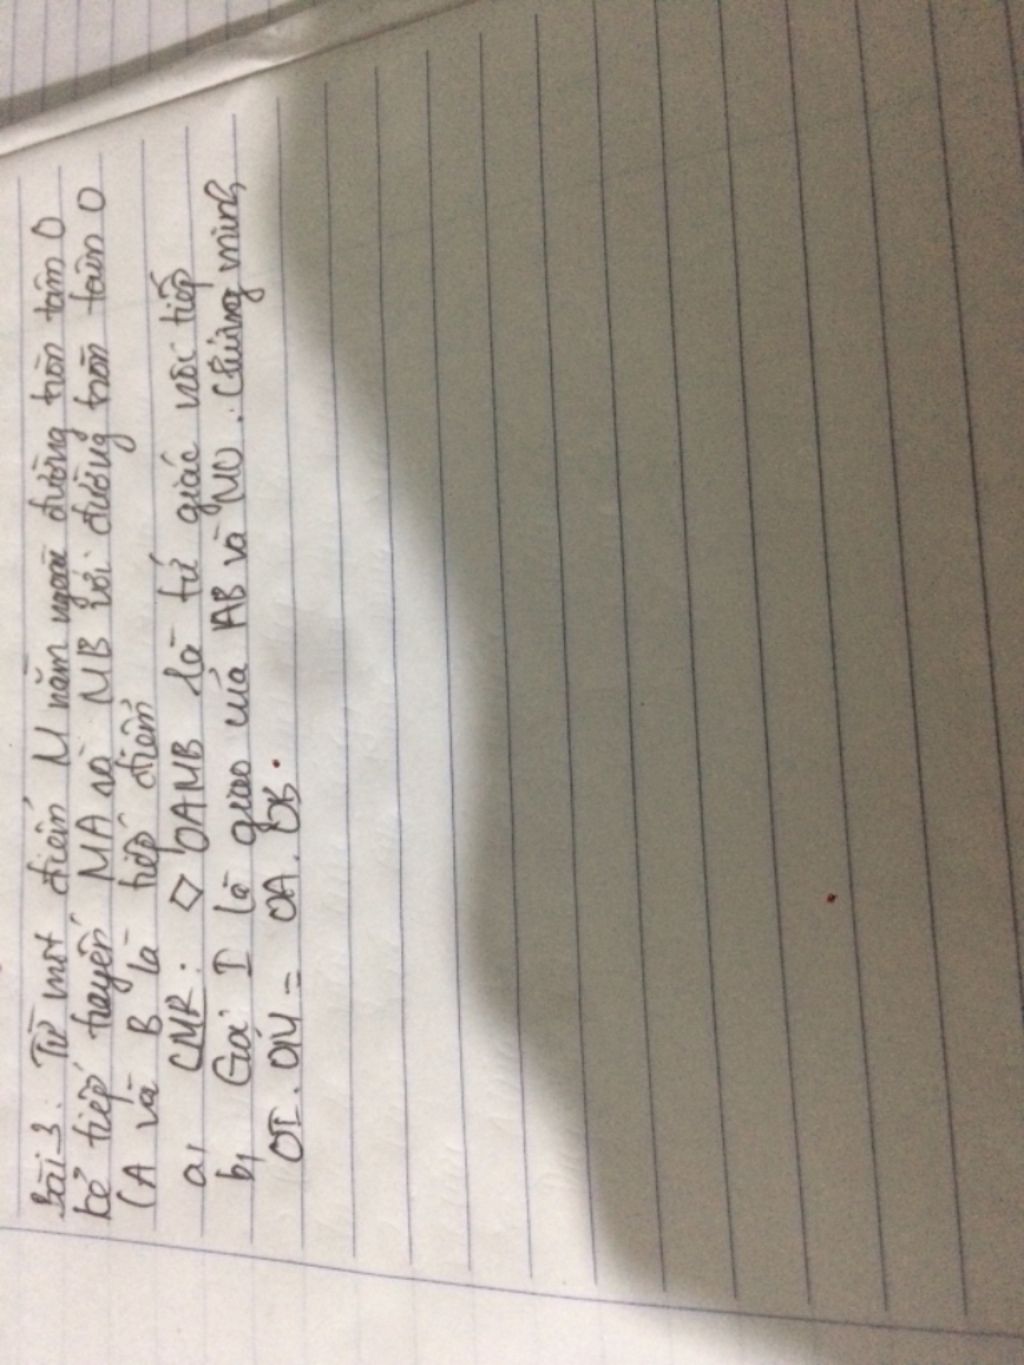 Bài 3: Từ một điểm M nằm ngoài đường tròn tâm O
kẻ tiếp tuyến MA và MB với đường tròn tâm O
(A và B là tiếp điểm
a, CMR: ◇ OAMB là tứ giác nội tiếp
b, Gọi I là giao của AB và MO. Chứng minh
OI. OM = OA. OB.